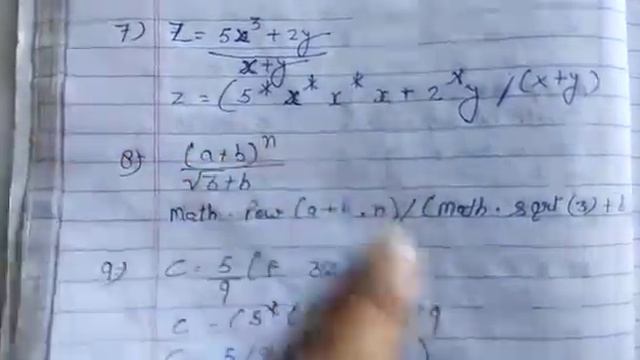 7) Z = 5x³ + 2y
x+y
z = (5 * x * x * x + 2 * y / (x+y)
8) (a+b)ⁿ
√3 + b
math . pow (a+b , n) / (math . sqrt (3) +
9) C = 5 (F 32
9
C = (5 * ( 9
C 5/9